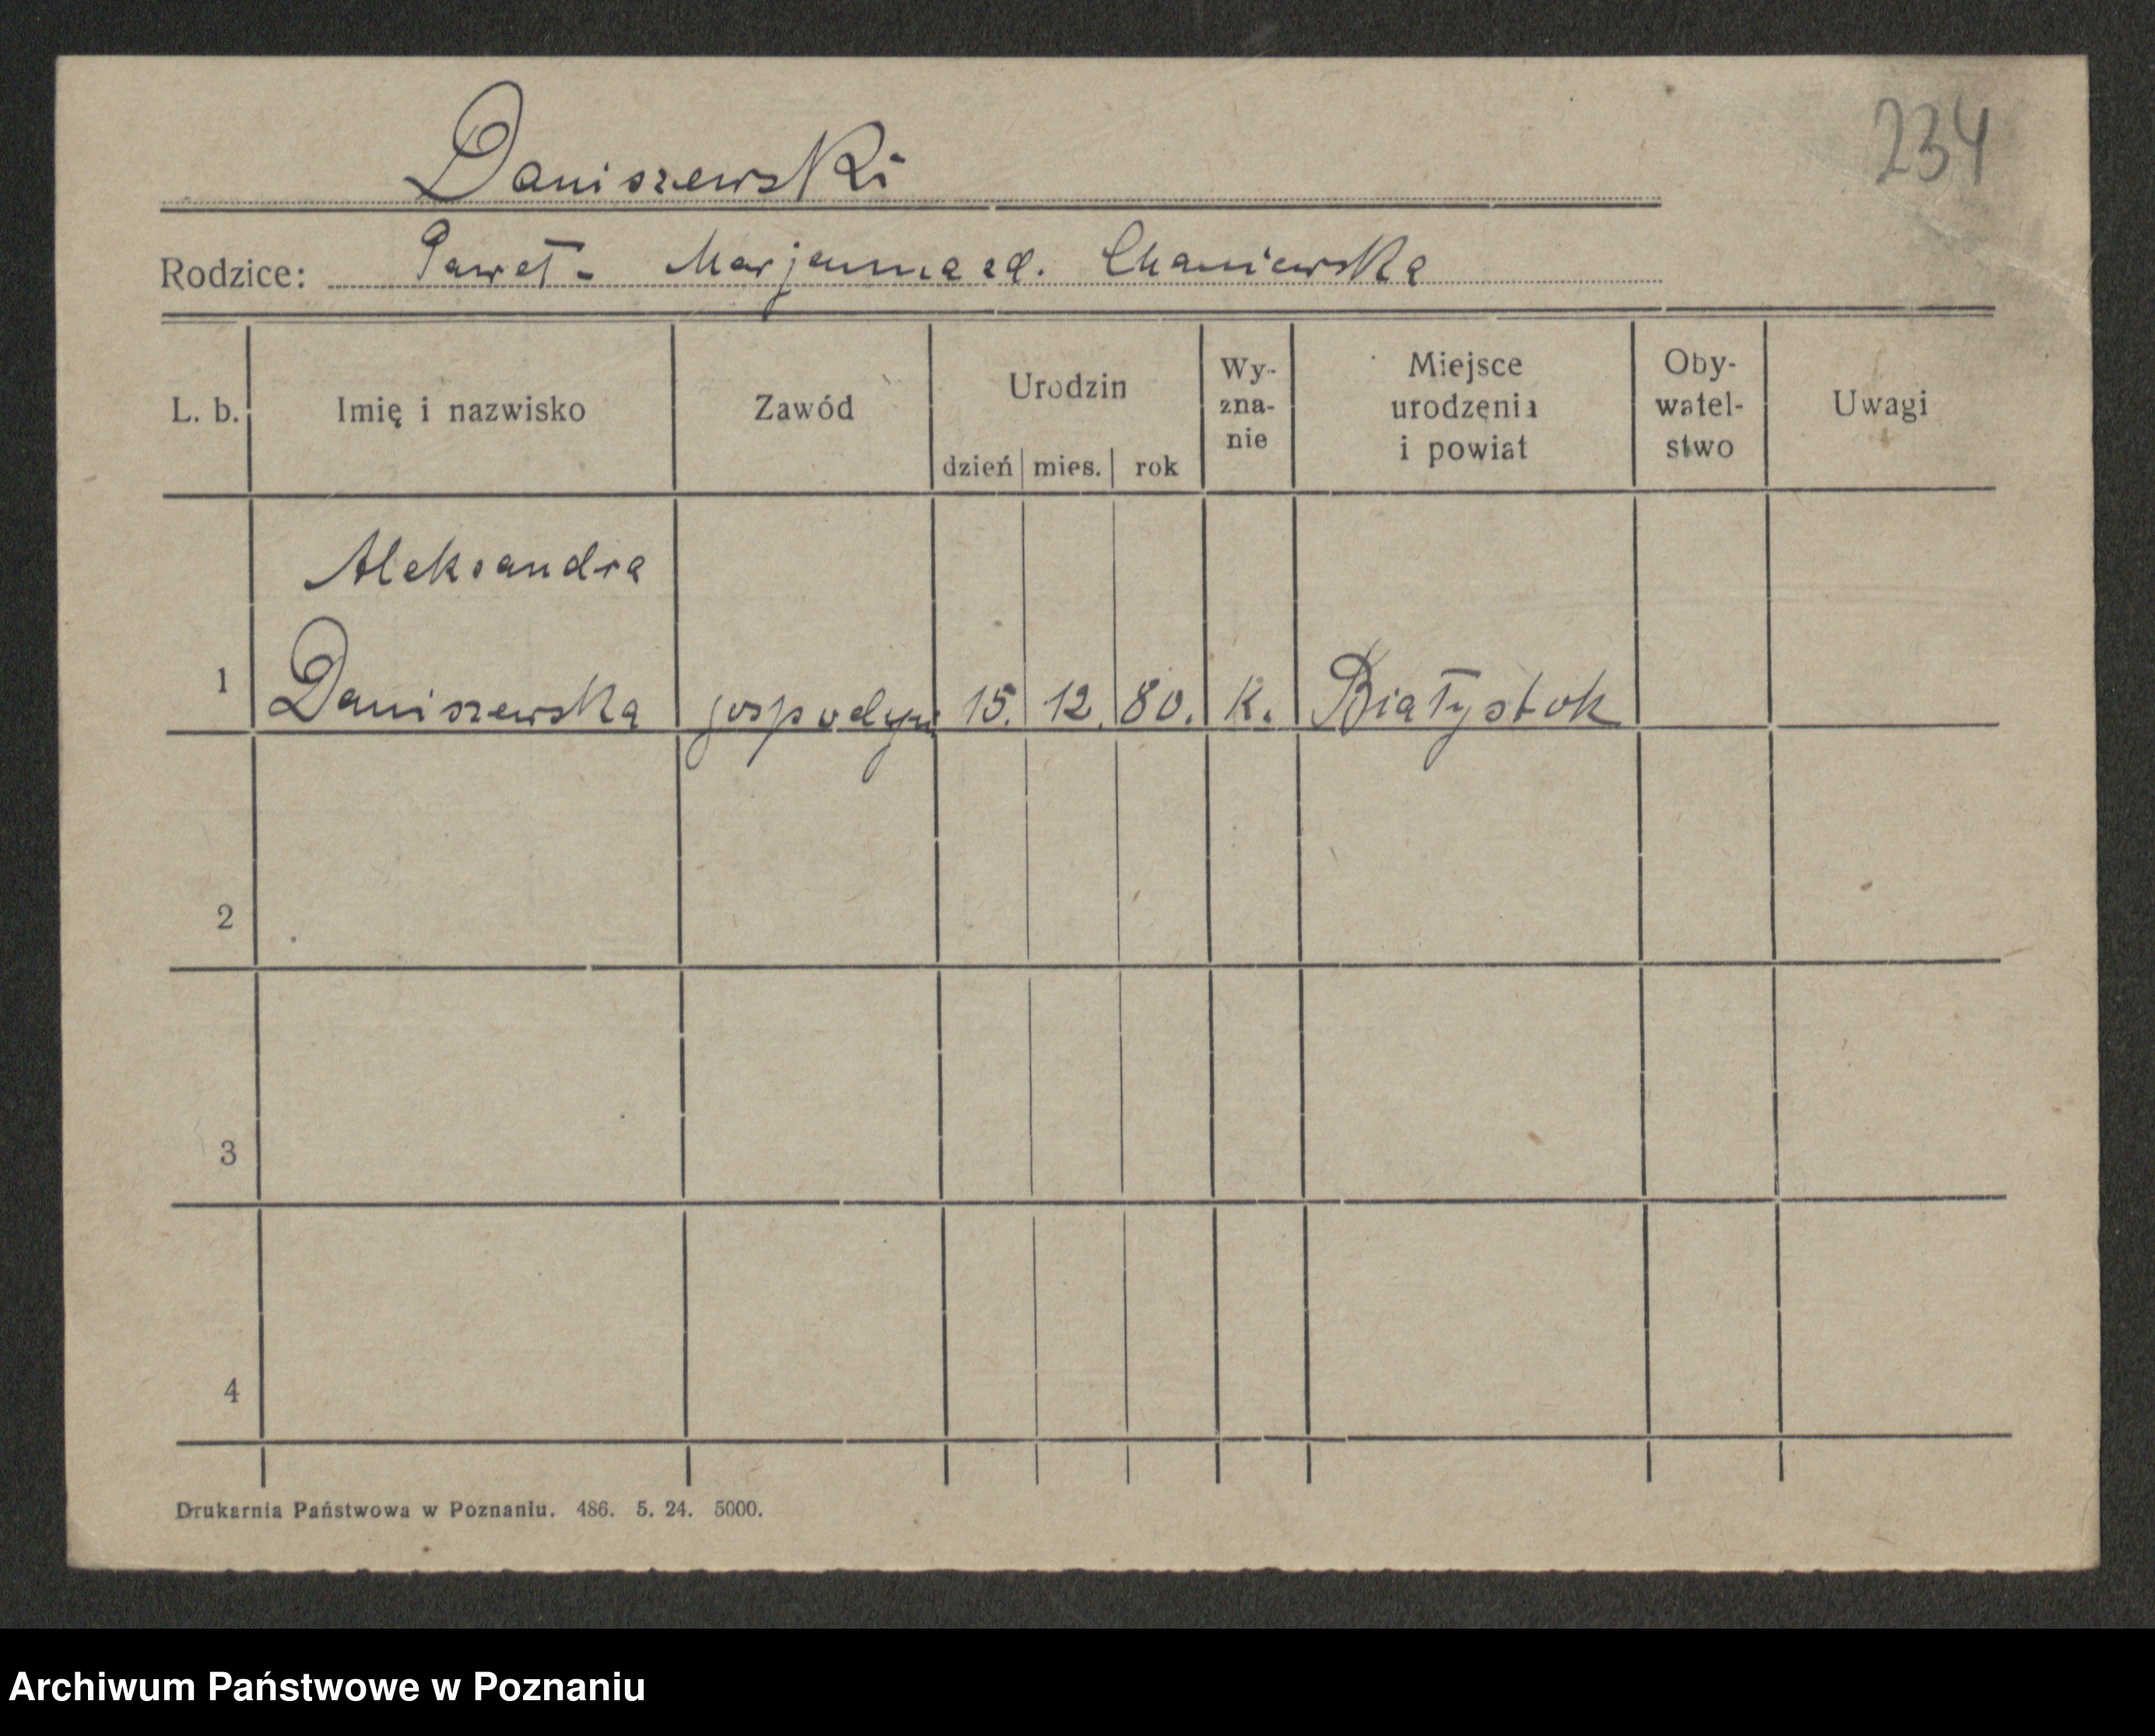 234
Daniszewski
Rodzice: Paweł - Marjanna zd. Chaniewska
L. b. Imię i nazwisko Zawód Urodzin dzień mies. rok Wy- zna- nie Miejsce urodzenia i powiat Oby- watel- stwo Uwagi
Aleksandra
1 Daniszewska gospodyni 15. 12. 80. K. Białystok
2
3
4
Drukarnia Państwowa w Poznaniu. 486. 5. 24. 5000.
Archiwum Państwowe w Poznaniu